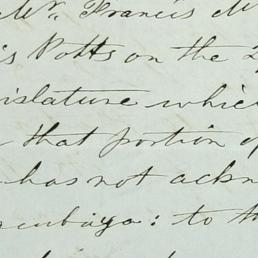 Mr. Francis M
is Potts on the 2
islature which
that portion of
has not ackn
cubiya: to th